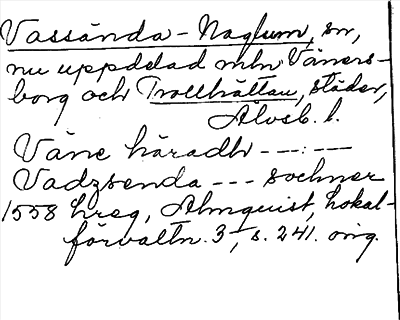 Vassända-Naglum, sn,
nu uppdelad mln Väners-
borg och Trollhättan, städer,
Älvsb. l.
Väne häradh --:--
Vadzsenda --- sochner
1558 hreg, Almquist, Lokal-
förvaltn. 3, s. 241. orig.